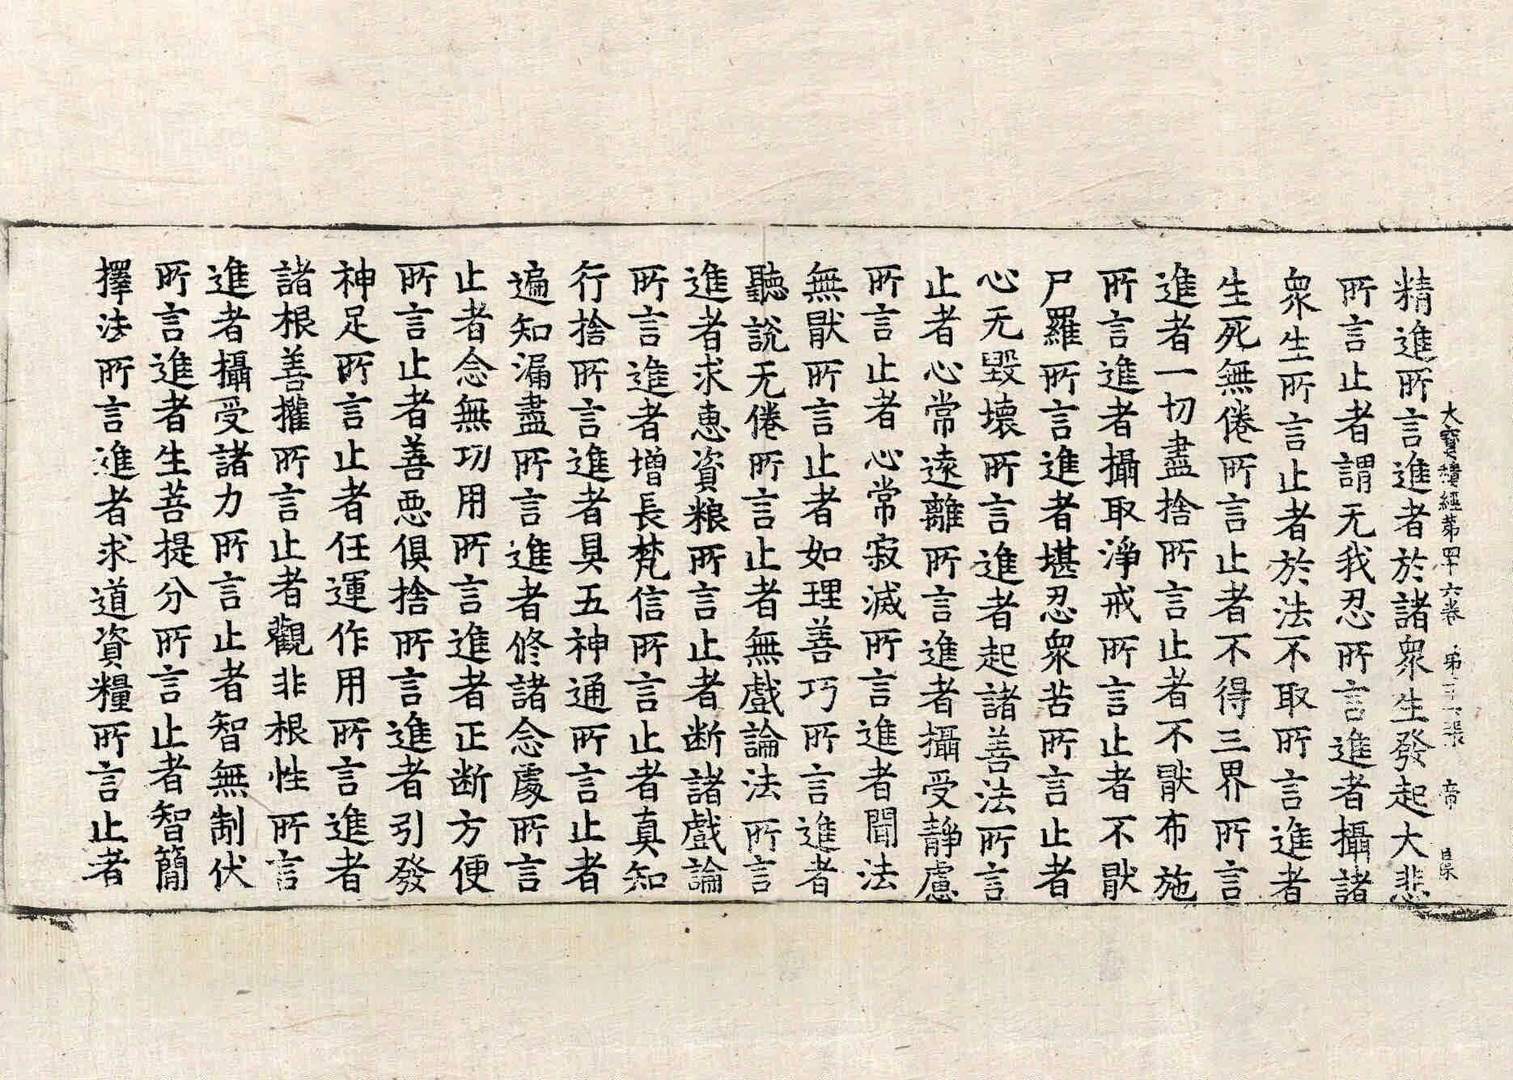 大寶積經苐四十六卷 第 張 帝
精進所言進者於諸衆生發起大悲
所言止者謂无我忍所言進者攝諸
衆生所言止者於法不取所言進者
生死無倦所言止者不得三界所言
進者一切盡捨所言止者不猒布施
所言進者攝取淨戒所言止者不猒
尸羅所言進者堪忍衆苦所言止者
心无毀壞所言進者起諸善法所言
止者心常遠離所言進者攝受靜慮
所言止者心常寂滅所言進者聞法
無猒所言止者如理善巧所言進者
聽說无倦所言止者無戲論法所言
進者求惠資粮所言止者断諸戲論
所言進者增長梵信所言止者真知
行捨所言進者具五神通所言止者
遍知漏盡所言進者修諸念處所言
止者念無功用所言進者正断方便
所言止者善惡俱捨所言進者引發
神足所言止者任運作用所言進者
諸根善權所言止者觀非根性所言
進者攝受諸力所言止者智無制伏
所言進者生菩提分所言止者智簡
擇法所言進者求道資糧所言止者